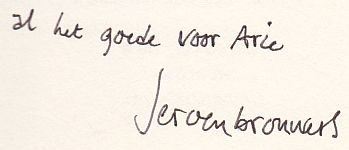 al het goede voor Arie
Jeroenbrouwers